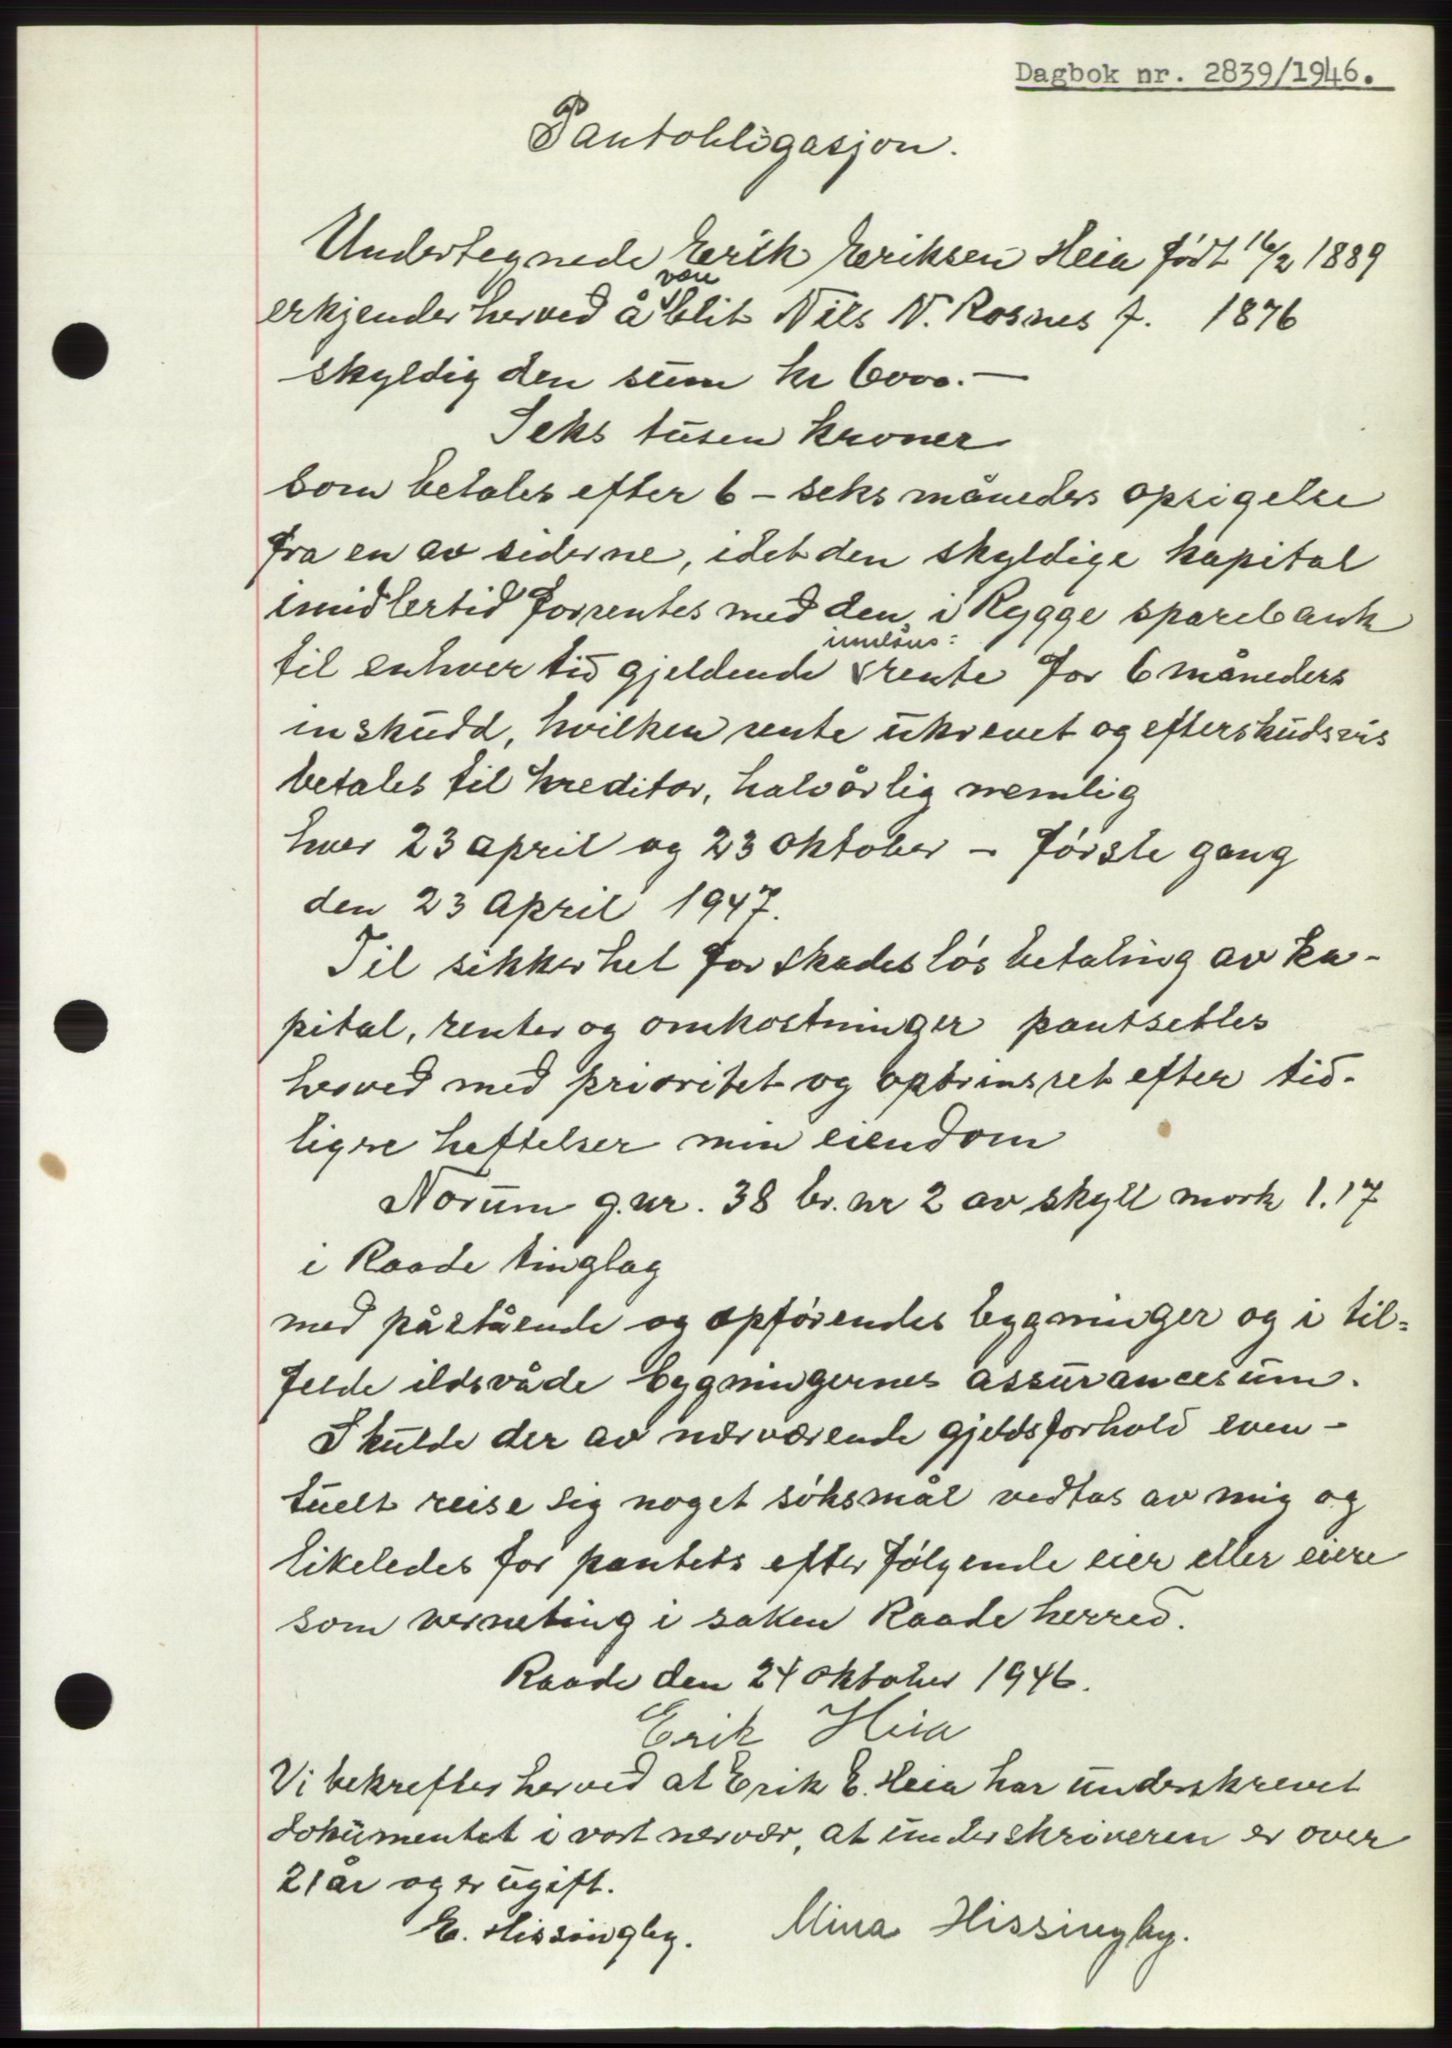 Dagbok nr. 2839/1946.
Pantobligasjon.
Undertegnede Erik Eriksen Heia født 16/2 1889
erkjender herved å blit Nils N. Rosnes f. 1876
skyldig den sum kr 6000.—
Seks tusen kroner
som betales efter 6 - seks måneders opsigelse
fra en av siderne, idet den skyldige kapital
imidlertid forrentes med den i Rygge sparebank
til enhver tid gjeldende rente for 6 måneders
inskudd, hvilken rente ukrevet og efterskudsvis
betales til kreditor, halvårlig nemlig
hver 23 april og 23 oktober - første gang
den 23 april 1947.
Til sikkerhet for skadesløs betaling av ka-
pital, renter og omkostninger pantsettes
herved med prioritet og optrinsret efter tid-
ligre heftelser min eiendom
Norum g.nr. 38 br. nr 2 av skyll mark 1.17
i Raade tinglag
med påstående og opførendes bygninger og i til=
felde ildsvåde bygningernes assurancesum.
Skulde der av nærværende gjeldsforhold even-
tuelt reise sig noget søksmål vedtas av mig og
likeledes for pantets efterfølgende eier eller eiere
som verneting i saken Raade herred.
Raade den 24 oktober 1946.
Erik Heia
Vi bekrefter herved at Erik E. Heia har underskrevet
dokumentet i vort nærvær, at underskriveren er over
21 år og er ugift.
E. Hissingby. Mina Hissingby.